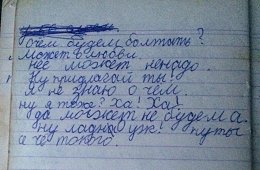 О чём будем болтать?
Может о любви.
нее может ненадо.
Ну придлагай ты!
я не знаю о чём.
ну я тоже? Ха! Ха!
да может не будем а.
ну ладна уж путы
а че токого.